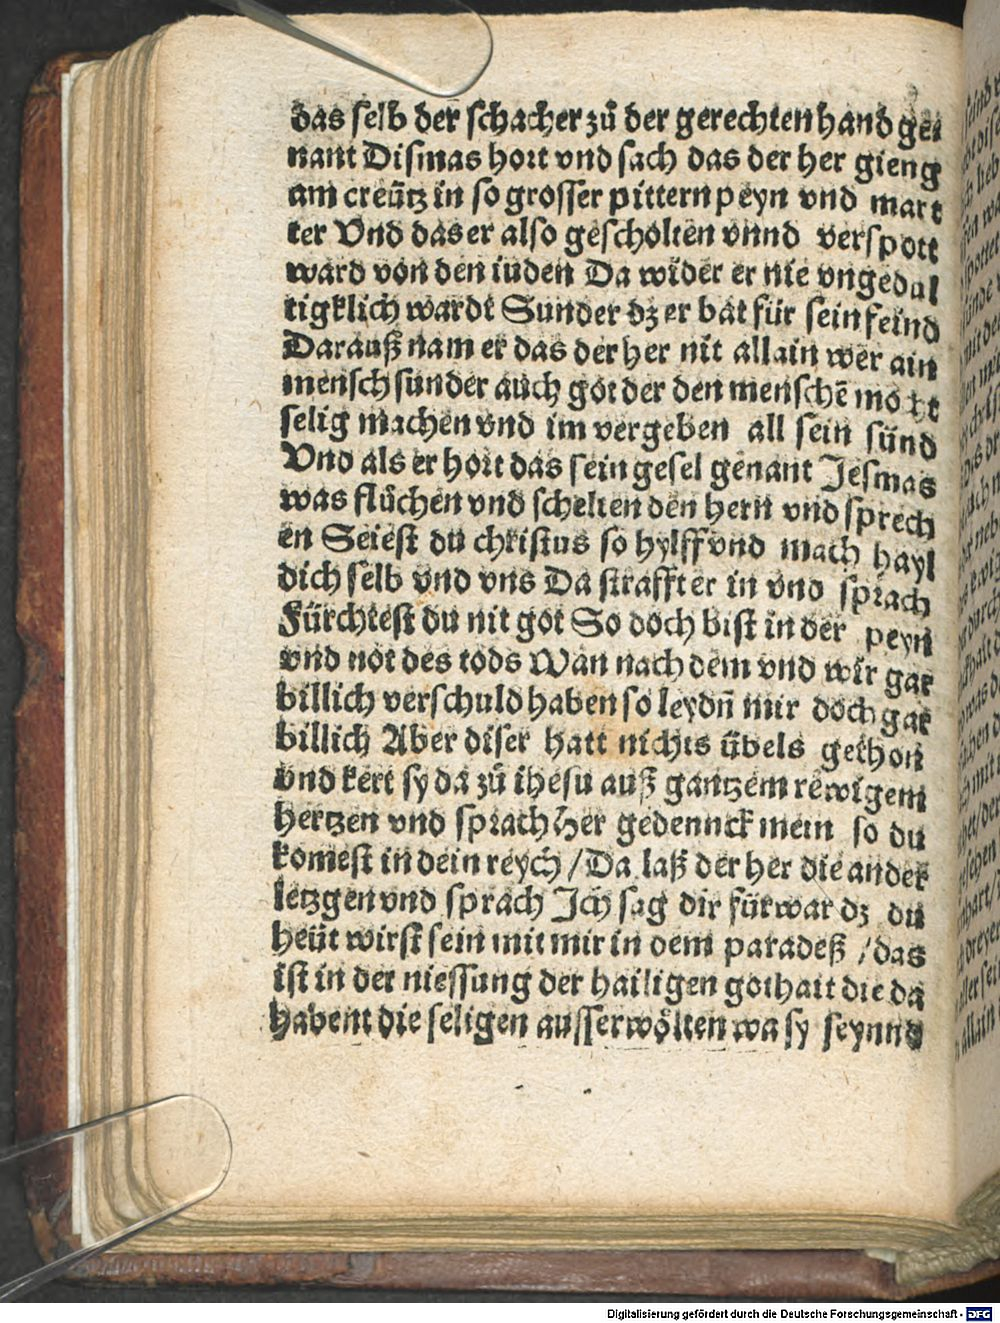 das selb der schacher zů der gerechten hand gei
nant Dismas hort vnd sach das der her gieng
am creütz in so grosser pittern peyn vnd mart
ter Vnd das er also gescholten vnnd verspott
ward von den iuden Da wider er nie vngedul
tigklich wardt Sunder dz er bat für sein feind
Darauß nam er das der her nit allain wer ain
mensch sunder auch got der den menschē mocht
selig machen vnd im vergeben all sein sünd
Vnd als er hort das sein gesel genant Jesmas
was flůchen vnd schelten den hern vnd sprech
en Seiest du christus so hylff vnd mach hayl
dich selb vnd vns Da strafft er in vnd sprach
Fürchtest du nit got So doch bist in der peyn
vnd not des tods Wan nach dem vnd wir gar
billich verschuld haben so leydn̄ mir doch gar
billich Aber diser hatt nichts übels gethon
vnd kert sy da zů ihesu auß gantzem rewigem
hertzen vnd sprach Her gedennck mein so du
komest in dein reych / Da laß der her die ander
letzgen vnd sprach Ich sag dir fürwar dz du
heüt wirst sein mit mir in dem paradeß / das
ist in der niessung der hailigen gothait die da
habent die seligen ausserwölten wa sy seynnd
Digitalisierung gefördert durch die Deutsche Forschungsgemeinschaft - DFG